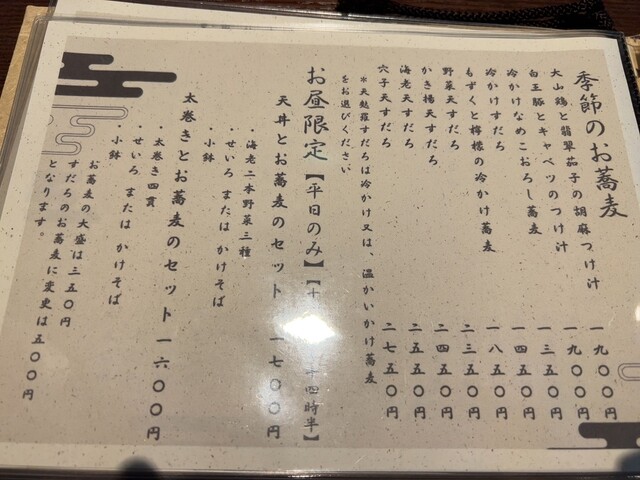 季節のお蕎麦
大山鶏と翡翠茄子の胡麻つけ汁 一九〇〇円
白王豚とキャベツのつけ汁 一九〇〇円
冷かけなめこおろし蕎麦 一三五〇円
冷かけすだち 一四五〇円
もずくと檸檬の冷かけ蕎麦 一八五〇円
野菜天すだち 二三五〇円
かき揚天すだち 二四五〇円
海老天すだち 二五五〇円
穴子天すだち 二七五〇円
＊天麩羅すだちは冷かけ又は、温かいかけ蕎麦
をお選びください
お昼限定【平日のみ】【十 十四時半】
天丼とお蕎麦のセット 一七〇〇円
・海老二本野菜三種
・せいろ または かけそば
・小鉢
太巻きとお蕎麦のセット 一六〇〇円
・太巻き四貫
・せいろ または かけそば
・小鉢
お蕎麦の大盛は三五〇円
すだちのお蕎麦に変更は五〇〇円
となります。